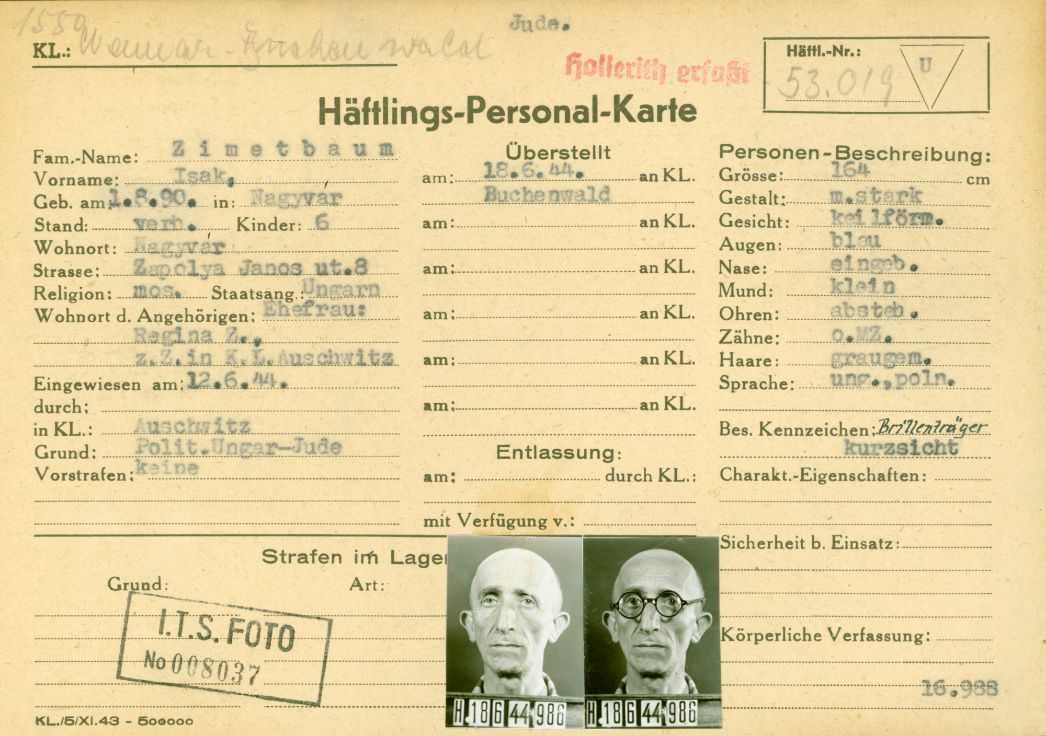 1559
KL.: Weimar-Buchenwald
Jude.
Hollerith erfaßt
Häftl.-Nr.: 53.019 U
Häftlings-Personal-Karte
Fam.-Name: Zimetbaum
Vorname: Isak,
Geb. am: 1.8.90. in: Nagyvar
Stand: verh. Kinder: 6
Wohnort: Nagyvar
Strasse: Zapolya Janos ut.8
Religion: mos. Staatsang. Ungarn
Wohnort d. Angehörigen: Ehefrau:
Regina Z.,
z.Z.in K.L.Auschwitz
Eingewiesen am: 12.6.44.
durch:
in KL.: Auschwitz
Grund: Polit.Ungar-Jude
Vorstrafen: keine
Überstellt
am: 18.6.44. an KL.
Buchenwald
am: an KL.
am: an KL.
am: an KL.
am: an KL.
am: an KL.
Entlassung:
am: durch KL.:
mit Verfügung v.:
Personen-Beschreibung:
Grösse: 164 cm
Gestalt: m.stark
Gesicht: keilförm.
Augen: blau
Nase: eingeb.
Mund: klein
Ohren: absteh.
Zähne: o.MZ.
Haare: graugem.
Sprache: ung.,poln.
Bes. Kennzeichen: Brillenträger
kurzsicht
Charakt.-Eigenschaften:
Sicherheit b. Einsatz:
Körperliche Verfassung:
16.988
Strafen im Lager
Grund: Art:
I.T.S. FOTO
No 008037
H 18 6 44 986
H 18 6 44 986
KL./5/XI.43 - 500000